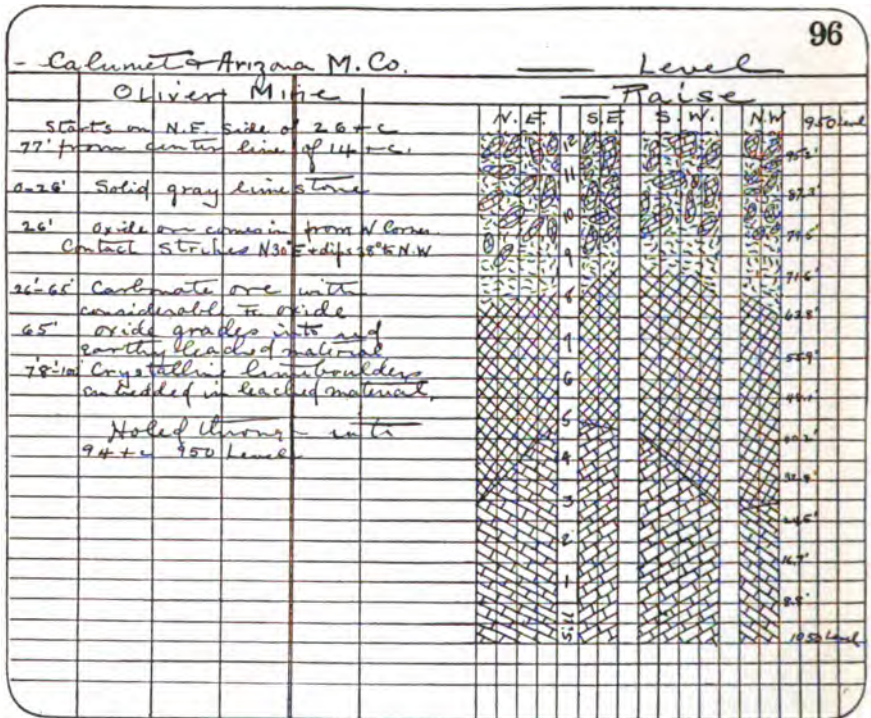 96
- Calumet & Arizona M. Co. Level
Oliver Mine Raise
Starts on N.E. side of 26 + c
77' from center line of 14 + c.
0-26' Solid gray limestone
26' oxide ore comes in from W Corner.
Contact Strikes N30°E + dips 38° to N.W
26'-65' Carbonate ore with
considerable Fe oxide
65' oxide grades into red
earthy leached material
78'- Crystalline lime boulders
embedded in leached material.
Holed through into
94 + c 950 Level
N. E. S. E. S. W. N W 950 Level
12
11
10
9
8
7
6
5
4
3
2
1
Sill
95.2'
87.3'
79.5'
71.6'
63.8'
55.9'
24.5'
16.7'
8.8'
1050 Level